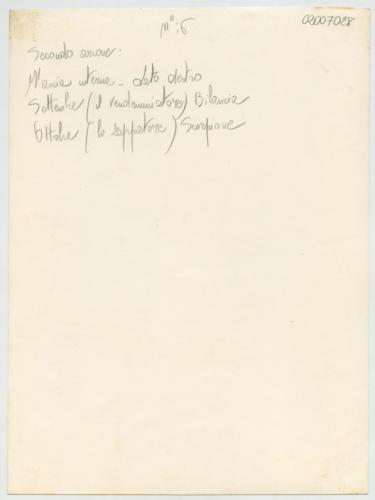 N°: 6
02007028
Secondo arcone:
M'ancia interna - lato destro
Settembre (il vendemmiatore) Bilancia
Ottobre (lo zappatore) Scorpione